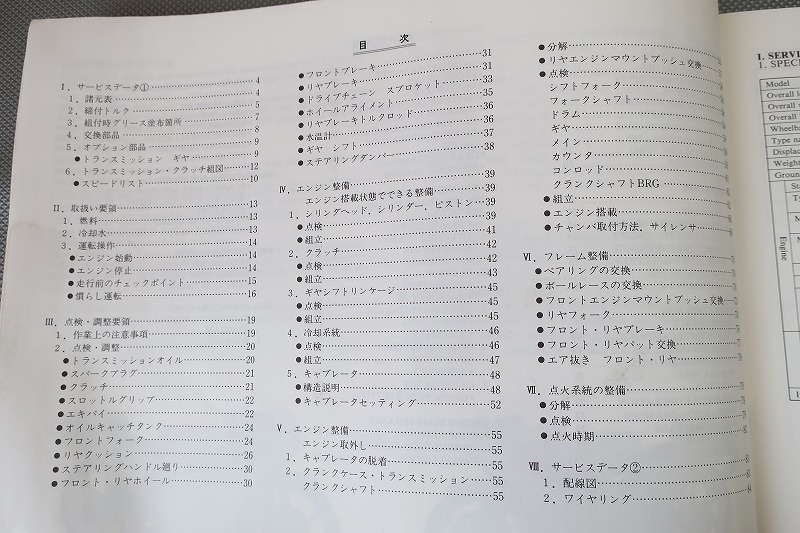 目次
I．サービスデータ① 4
1．諸元表 4
2．締付トルク 5
3．組付時グリース塗布箇所 7
4．交換部品 8
5．オプション部品 9
●トランスミッション ギヤ 9
6．トランスミッション・クラッチ組図 12
●スピードリスト 10
II．取扱い要領 13
1．燃料 13
2．冷却水 13
3．運転操作 14
●エンジン始動 14
●エンジン停止 14
●走行前のチェックポイント 15
●慣らし運転 16
III．点検・調整要領 19
1．作業上の注意事項 19
2．点検・調整 20
●トランスミッションオイル 20
●スパークプラグ 21
●クラッチ 21
●スロットルグリップ 22
●エキパイ 22
●オイルキャッチタンク 24
●フロントフォーク 24
●リヤクッション 26
●ステアリングハンドル廻り 30
●フロント・リヤホイール 30
●フロントブレーキ 31
●リヤブレーキ 31
●ドライブチェーン スプロケット 33
●ホイールアライメント 35
●リヤブレーキトルクロッド 36
●水温計 36
●ギヤ シフト 37
●ステアリングダンパー 38
IV．エンジン整備 39
エンジン搭載状態でできる整備 39
1．シリングヘッド，シリンダー，ピストン 39
●点検 41
●組立 41
2．クラッチ 42
●点検 42
●組立 43
3．ギヤシフトリンケージ 45
●点検 45
●組立 45
4．冷却系統 46
●点検 46
●組立 47
5．キャブレータ 48
●構造説明 48
●キャブレータセッティング 52
V．エンジン整備 55
エンジン取外し 55
1．キャブレータの脱着 55
2．クランクケース・トランスミッション 55
クランクシャフト 55
●分解
●リヤエンジンマウントブッシュ交換
●点検
シフトフォーク
フォークシャフト
ドラム
ギヤ
メイン
カウンタ
コンロッド
クランクシャフトBRG
●組立
●エンジン搭載
●チャンバ取付方法，サイレンサ
VI．フレーム整備
●ベアリングの交換
●ボールレースの交換
●フロントエンジンマウントブッシュ交換
●リヤフォーク
●フロント・リヤブレーキ
●フロント・リヤパット交換
●エア抜き フロント・リヤ
VII．点火系統の整備
●分解
●点検
●点火時期
VIII．サービスデータ②
1．配線図
2．ワイヤリング
I. SERVI
1. SPECI
Model
Overall l
Overall
Overall
Wheelba
Type na
Displac
Weight
Groun
Engine